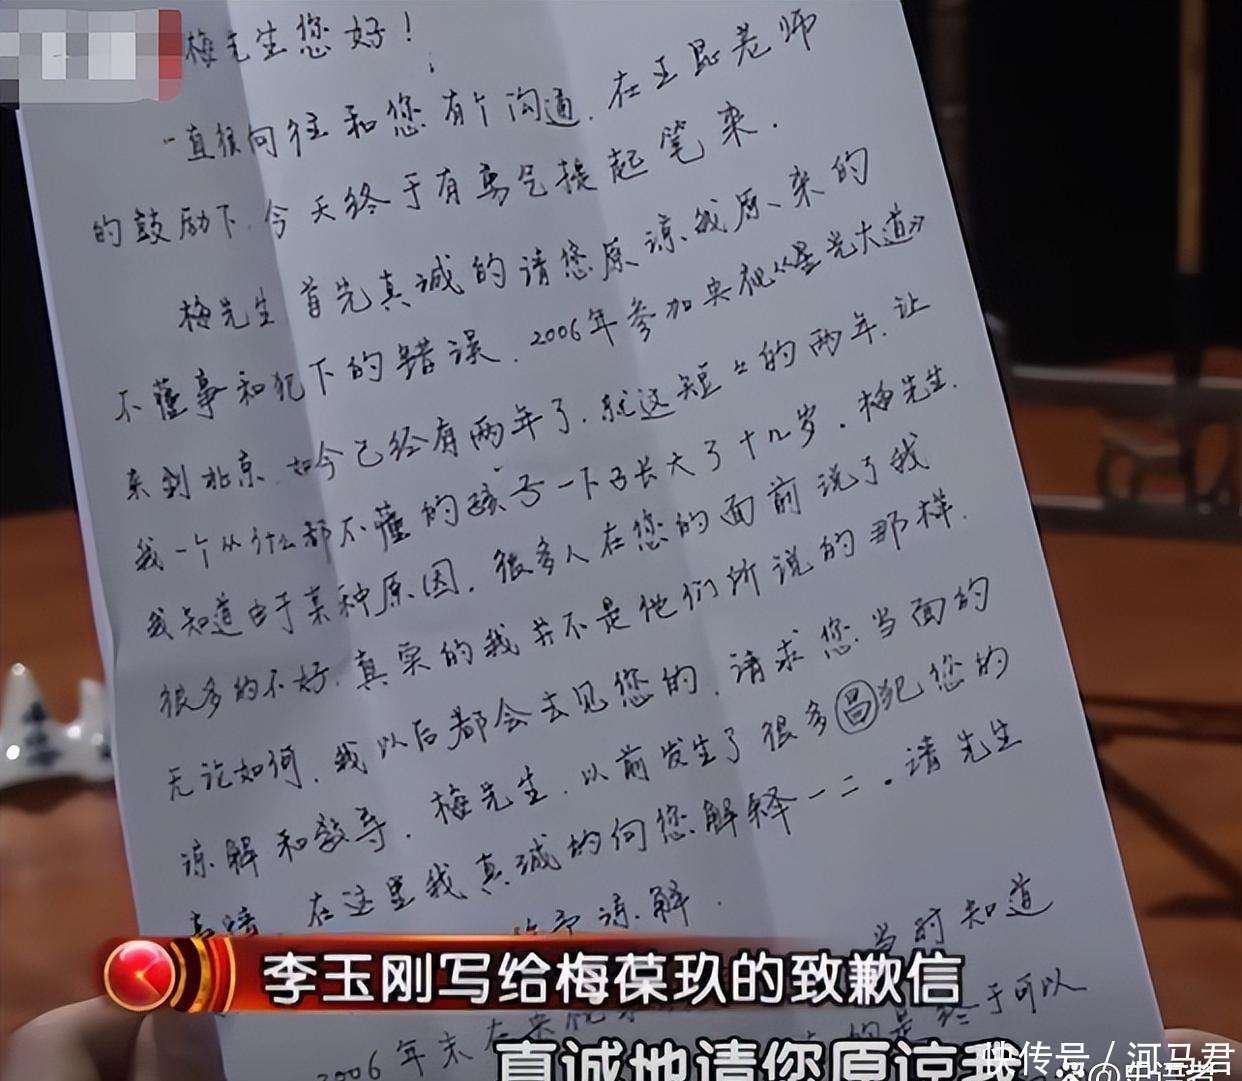 梅先生您好！
一直很向往和您有个沟通.在王昆老师
的鼓励下.今天终于有勇气提起笔来.
梅先生.首先真诚的请您原谅我原来的
不懂事和犯下的错误.2006年参加央视《星光大道》
来到北京.如今已经有两年了.就这短々的两年.让
我一个从什么都不懂的孩子一下子长大了十几岁.梅先生.
我知道由于某种原因.很多人在您的面前说了我
很多的不好.真实的我并不是他们所说的那样.
无论如何.我以后都会去见您的.请求您当面的
谅解和教导.梅先生.以前发生了很多冒犯您的
在这里我真诚的向您解释一二.请先生
谅解.
当时知道
2006年末在
终于可以
李玉刚写给梅葆玖的致歉信
真诚地请您原谅我
快传号／河马君